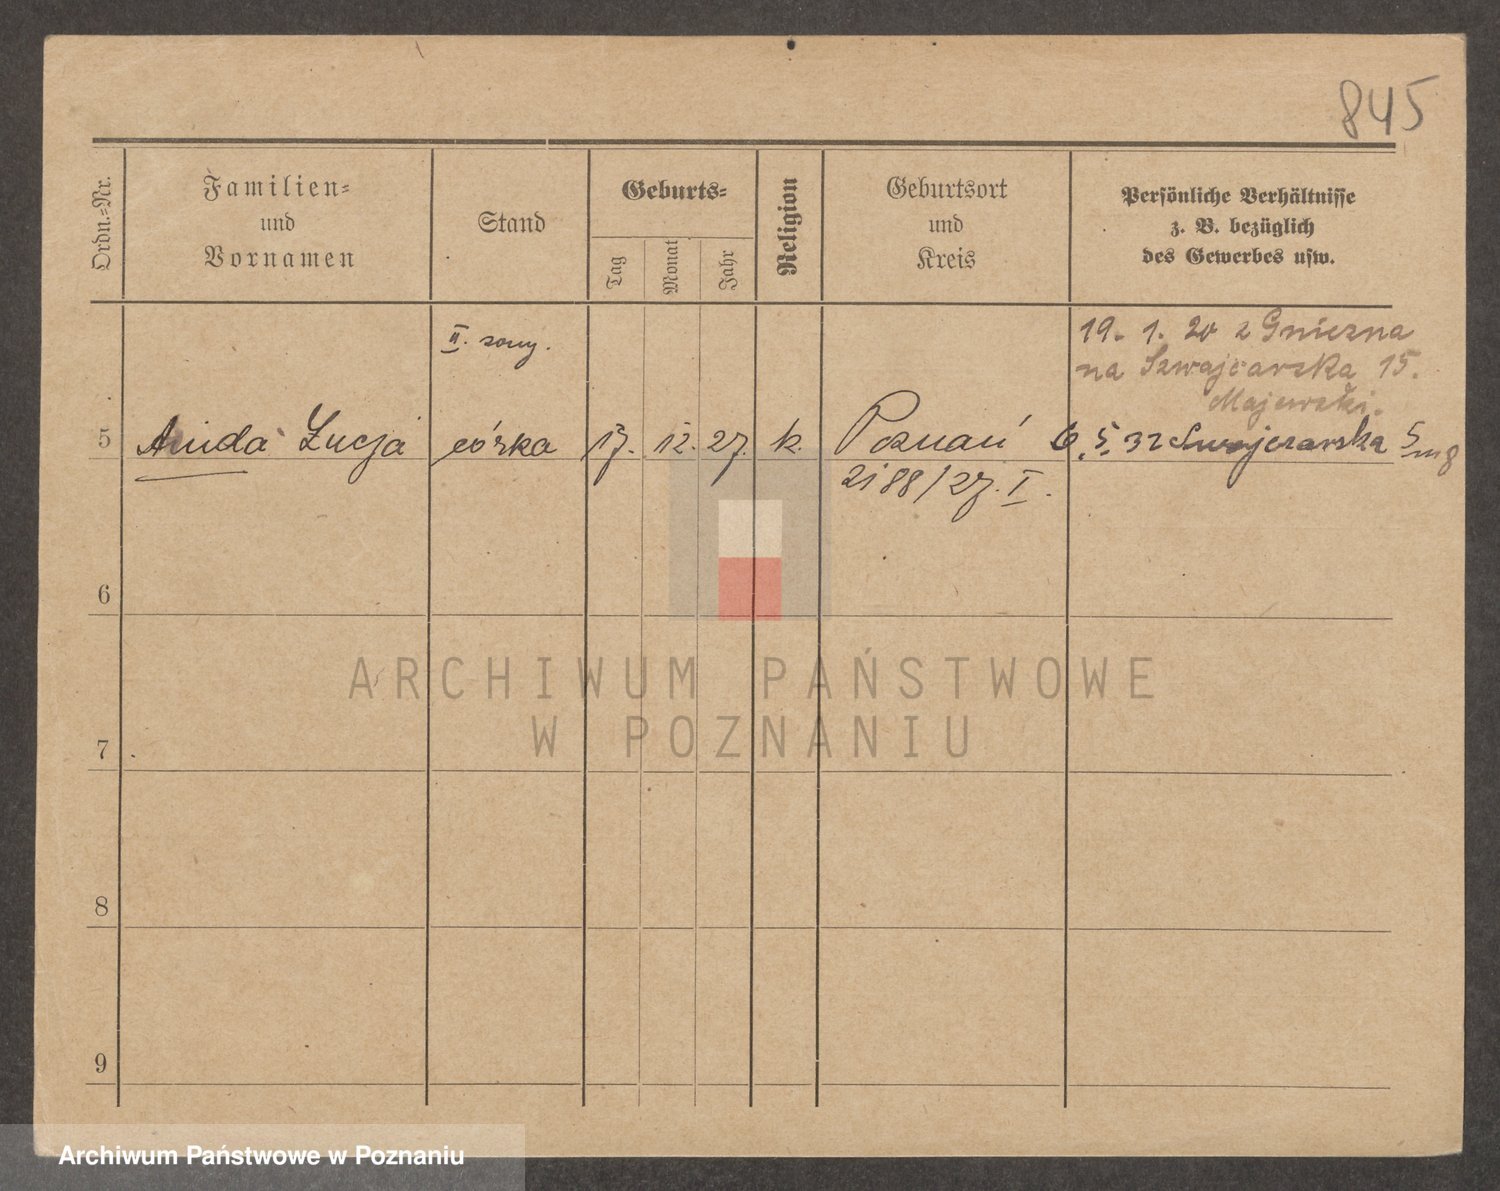 845
Ordn.-Nr.
Familien-
und
Vornamen
Stand
Geburts-
Tag
Monat
Jahr
Religion
Geburtsort
und
Kreis
Persönliche Verhältnisse
z. B. bezüglich
des Gewerbes usw.
II. żony.
19. 1. 20 z Gniezna
na Szwajcarska 15.
Majewski.
5 Łucja córka 17. 12. 27. k. Poznań 6. 5. 32 Szwajcarska 5
2188/27. I.
6
7
8
9
ARCHIWUM PAŃSTWOWE
W POZNANIU
Archiwum Państwowe w Poznaniu